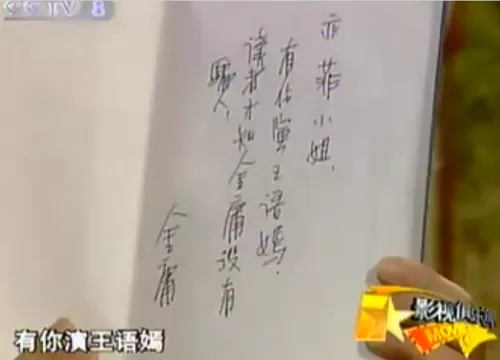 CCTV 8
亦菲小姐，
有你演王语嫣，
读者才知金庸没有
骗人，
金庸
有你演王语嫣
影视俱乐部